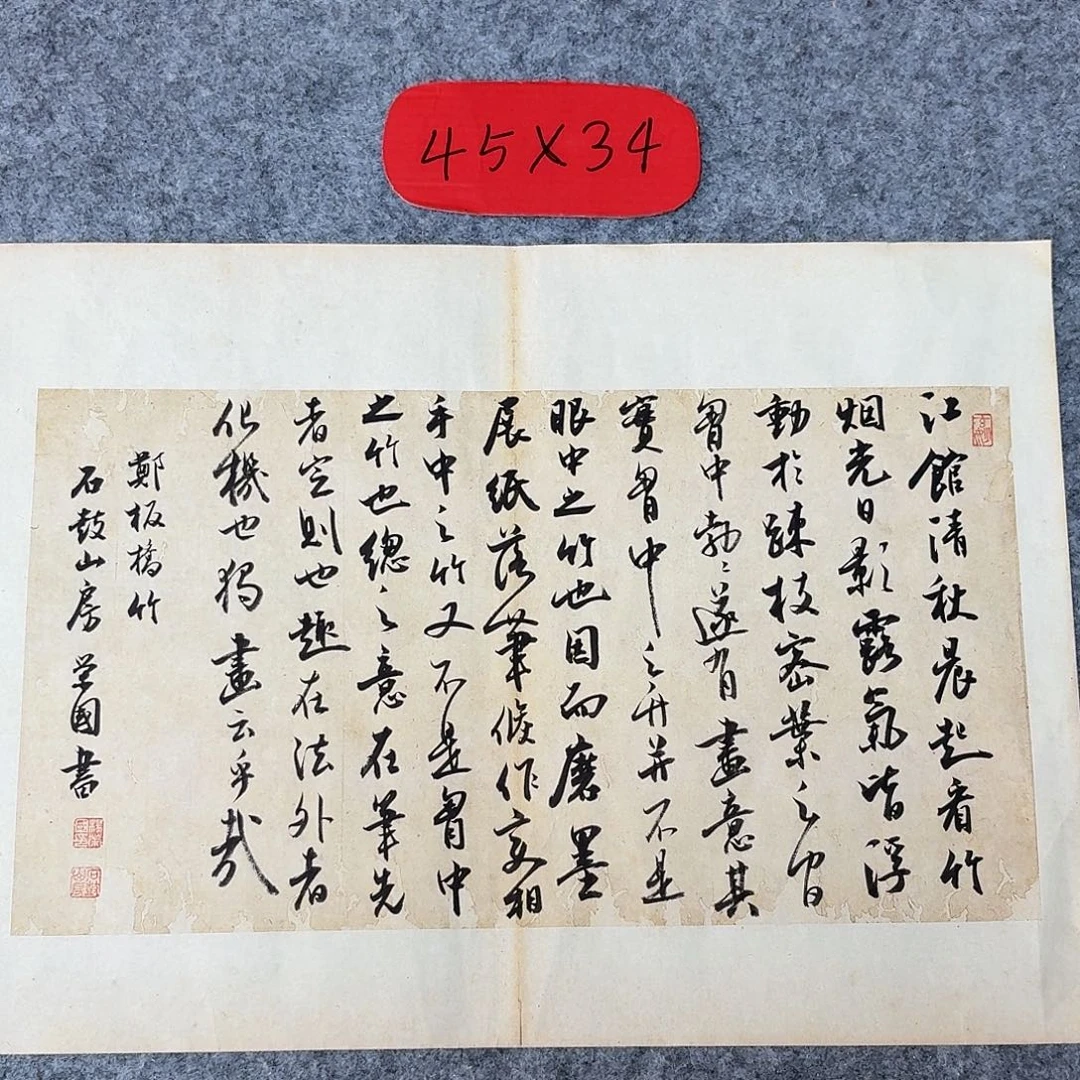 45X34
江館清秋晨起看竹
烟光日影露氣皆浮
動於疎枝密葉之間
胷中勃〻遂有畫意其
實胷中之竹并不是
眼中之竹也因而磨墨
展紙落筆倏作变相
手中之竹又不是胷中
之竹也總之意在筆先
者定則也趣在法外者
化機也獨畫云乎哉
鄭板橋竹
石鼓山房 國書